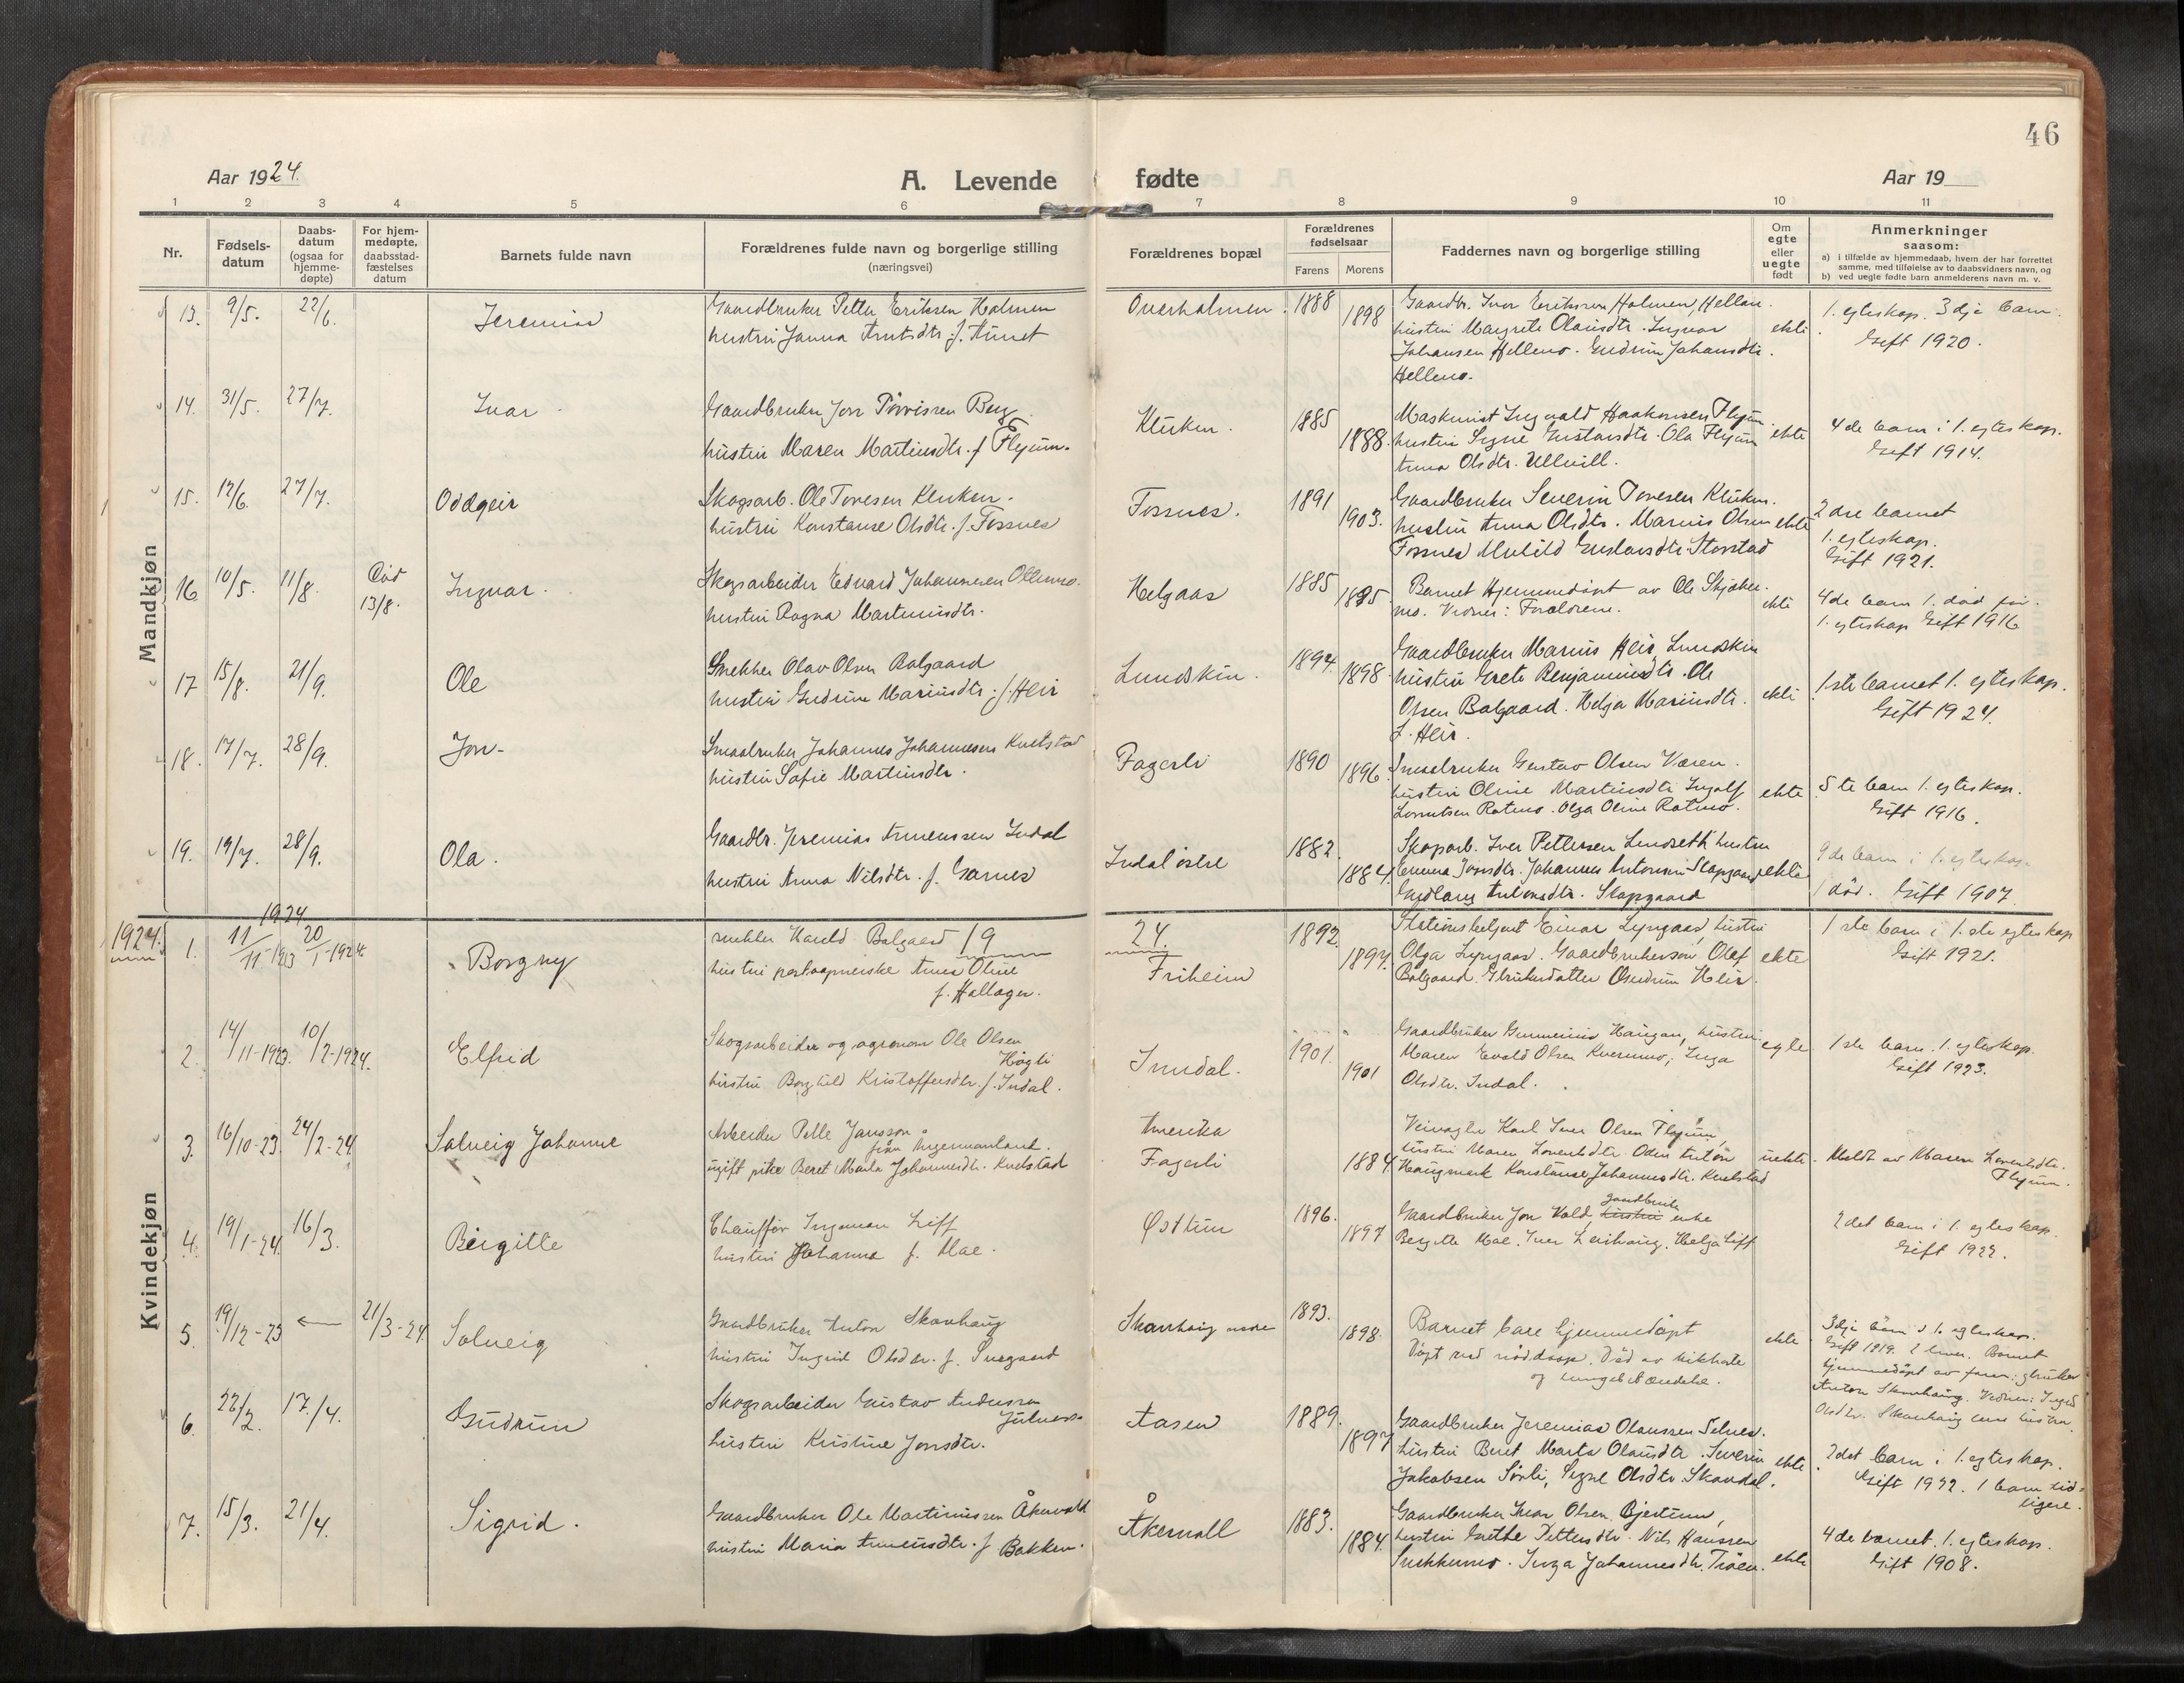 46
Aar 1924.
A. Levende fødte
Aar 19
1 2 3 4 5 6 7 8 9 10 11
Nr.
Fødsels-
datum
Daabs-
datum
(ogsaa for
hjemme-
døpte)
For hjem-
medøpte,
daabsstad-
fæstelses
datum
Barnets fulde navn
Forældrenes fulde navn og borgerlige stilling
(næringsvei)
Forældrenes bopæl
Forældrenes
fødselsaar
Farens Morens
Faddernes navn og borgerlige stilling
Om
egte
eller
uegte
født
Anmerkninger
saasom:
a) i tilfælde av hjemmedaab, hvem der har forrettet
samme, med tilføielse av to daabsvidners navn, og
b) ved uegte fødte barn anmelderens navn m. v.
Mandkjøn
13. 9/5. 22/6. Jeremias
Gaardbruker Petter Eriksen Holmen
hustru Janna Arntsdtr. f. Tunet
Overholmen. 1888 1898
Gaardbr. Iver Eriksen Holmen, Hellan.
hustru Margrete Olausdtr. Ingvar
Johansen Hellemo. Gudrun Johansdtr.
Hellemo.
ekte
1. egteskap. 3dje barn.
Gift 1920.
14. 31/5. 27/7. Ivar
Gaardbruker Jon Berg
hustru Maren Martinsdtr. f. Flyum.
Kluken. 1885 1888.
Maskinist Ingvald Haakonsen Flyum.
hustru Signe Gustavsdtr. Ola Flyum
Anna Olsdtr. Ullvill.
ekte
4de barn i 1. egteskap.
Gift 1914.
15. 12/6. 27/7. Oddgeir
Skogsarb. Ole Tovesen Kluken.
hustru Konstanse Olsdtr. f. Fossnes
Fossnes. 1891 1903.
Gaardbruker Severin Tovesen Kluken.
hustru Anna Olsdtr. Marius Olsen
Fossnes Gustavsdtr. Storstad
ekte
2dre barnet
1. egteskap.
Gift 1921.
16 10/5. 11/8. Død 13/8. Ingvar.
Skogsarbeider Edvard Johannesen
hustru Ragna Martinusdtr.
Helgaas 1885 1885
Barnet Hjemmedøpt av Ole
mo. Vidner: Forældrene.
ekte
4de barn 1. død før.
1. egteskap Gift 1916
17 15/8. 21/9. Ole
Snekker Olav Olsen Balgaard
hustru Gudrun Mariusdtr. f. Heir
Lundskin. 1894 1898
Gaardbruker Marius Heir, Lundskin
hustru Grete Benjaminsdtr. Ole
Olsen Balgaard. Helga Mariusdtr.
f. Heir.
ekte
1ste barnet 1. egteskap.
Gift 1924.
18. 17/7. 28/9. Jon
Smaabruker Johannes Johannesen Kvelstad
hustru Sofie Martinsdtr.
Fagerli 1890 1896
Smaabruker Gustav Olsen Væren.
hustru Oline Martinsdtr. Ingolf
Lorentsen Rotmo. Olga Oline Rotmo.
ekte
5te barn 1. egteskap.
Gift 1916.
19. 19/7. 28/9. Ola.
Gaardbr. Jeremias Indal
hustru Anna Nilsdtr. f. Garnes
Indal østre 1882. 1884.
Skogsarb. Iver Pettersen Lundseth hustru
Emma Johannes Antonsen Slapgaard
Antonsdtr. Slapgaard
ekte
9de barn i 1. egteskap.
1 død. Gift 1907.
Kvindekjøn
1924. 1924 1924.
1. 11/11-1923 20/1-1924. Borgny
snekker Harald Balgaard
hustru Anna Oline
f. Hallager.
Friheim 1892 1894.
Stationsbetjent Einar Lyngaas, hustru
Olga Lyngaas. Gaardbrukersøn Olaf
Balgaard. Gbrukerdatter Gudrun Heir.
ekte
1ste barn i 1.ste egteskap
Gift 1921.
2. 14/11-1923. 10/2-1924. Elfrid
Skogsarbeider og agronom Ole Olsen
Høgli
hustru Borghild Kristoffersdtr. f. Indal.
Inndal. 1901. 1901
Gaardbruker Haugan, hustru
Maren Evald Olsen Kvernmo, Inga
Olsdtr. Indal.
egte
1ste barn. 1. egteskap.
Gift 1923.
3. 16/10-23. 24/2-24 Solveig Johanne
Arbeider Pelle Jansson
från
ugift pike Beret Marta Johannesdtr. Kvelstad
Amerika
Fagerli 1884.
Veivogter Karl Iver Olsen Flyum,
hustru Maren Lorentsdtr. Odin Anton
Haugmark Konstanse Johannesdtr. Kvelstad
uekte
Meldt av Maren Lorentsdtr.
Flyum.
4. 19/1-24. 16/3. Birgitte
Chauffør Ingeman Liff
hustru Johanna f. Mæ.
Østtun 1896. 1897
Gaardbruker Jon Vold, hustru gaardbruker enke
Bergitte Mæ. Iver Helga Liff
2det barn i 1. egteskap.
Gift 1922.
5. 19/12-23 ← 21/3-24. Solveig
Gaardbruker Anton Skavhaug
hustru Ingrid Olsdtr. f. Suegaard
Skavhaug nedre 1893. 1898.
Barnet bare hjemmedøpt
Døpt ved nøddaap. Død av kikhoste
og
ekte
3dje barn i 1. egteskap.
Gift 1919. 2 lever. Barnet
hjemmedøpt av faren: gbruker
Anton Skavhaug. Vidner: Ingrid
Olsdtr. Skavhaug
6. 22/2. 17./4. Gudrun
Skogsarbeider Gustav Andersen
Julnes.
hustru Kristine Jonsdtr.
Aasen 1889. 1897
Gaardbruker Jeremias Olaussen Selnes.
hustru Beret Marta Olausdtr. Severin
Jakobsen Sørli, Signe Olsdtr. Skavdal.
ekte
2det barn i 1. egteskap.
Gift 1922. 1 barn tid-
ligere.
7. 15/3. 21/4. Sigrid.
Gaardbruker Ole Martinussen Åkervold
hustru Maria f. Bakken.
Åkervoll 1883. 1884.
Gaardbruker Ivar Olsen Bjertun,
hustru Grethe Pettersdtr. Nils Hanssen
Inga Johannesdtr. Trøen.
ekte
4de barnet. 1. egteskap.
Gift 1908.